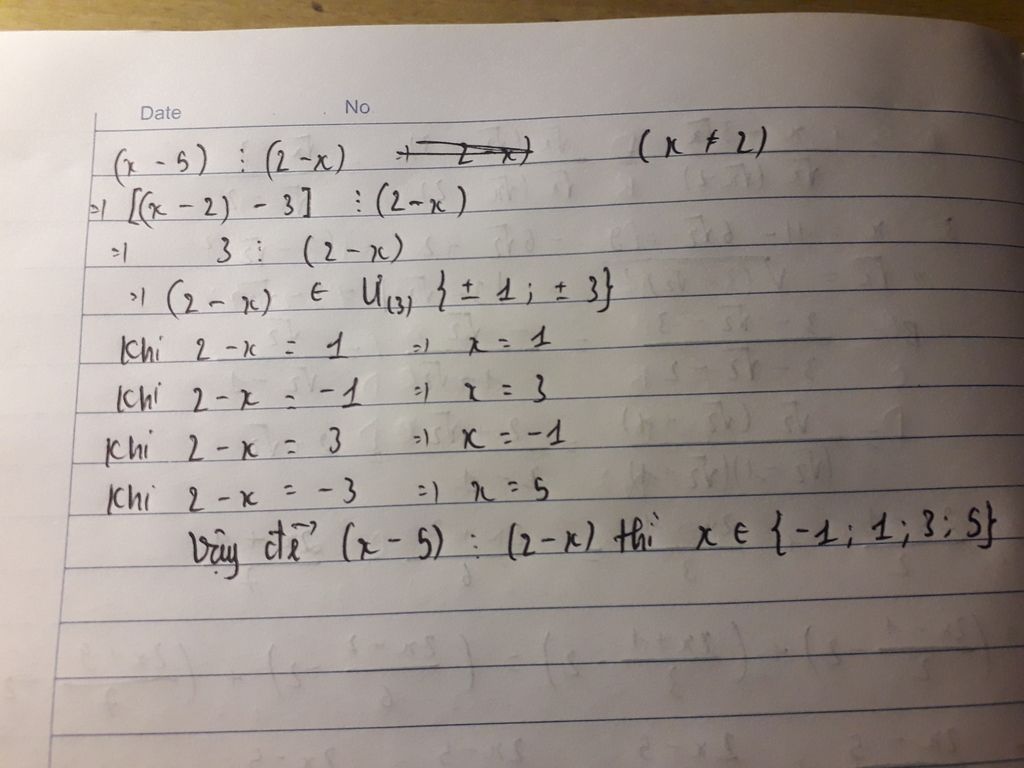 Date No
(x - 5) ⋮ (2 - x) (x ≠ 2)
=> [(x - 2) - 3] ⋮ (2 - x)
=> 3 ⋮ (2 - x)
=> (2 - x) ∈ Ư(3) {± 1 ; ± 3}
Khi 2 - x = 1 => x = 1
Khi 2 - x = -1 => x = 3
Khi 2 - x = 3 => x = -1
Khi 2 - x = -3 => x = 5
Vậy để (x - 5) ⋮ (2 - x) thì x ∈ {-1 ; 1 ; 3 ; 5}